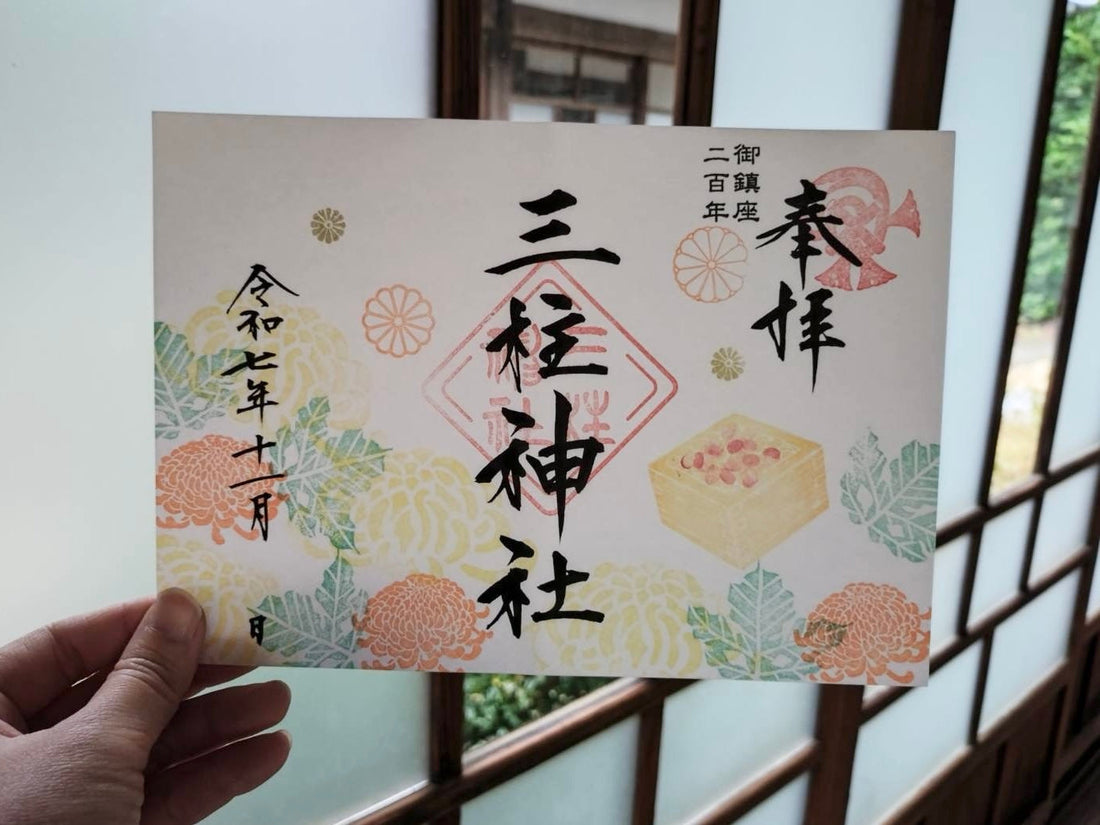 奉拝
御鎮座
二百年
三柱神社
令和七年十一月 日